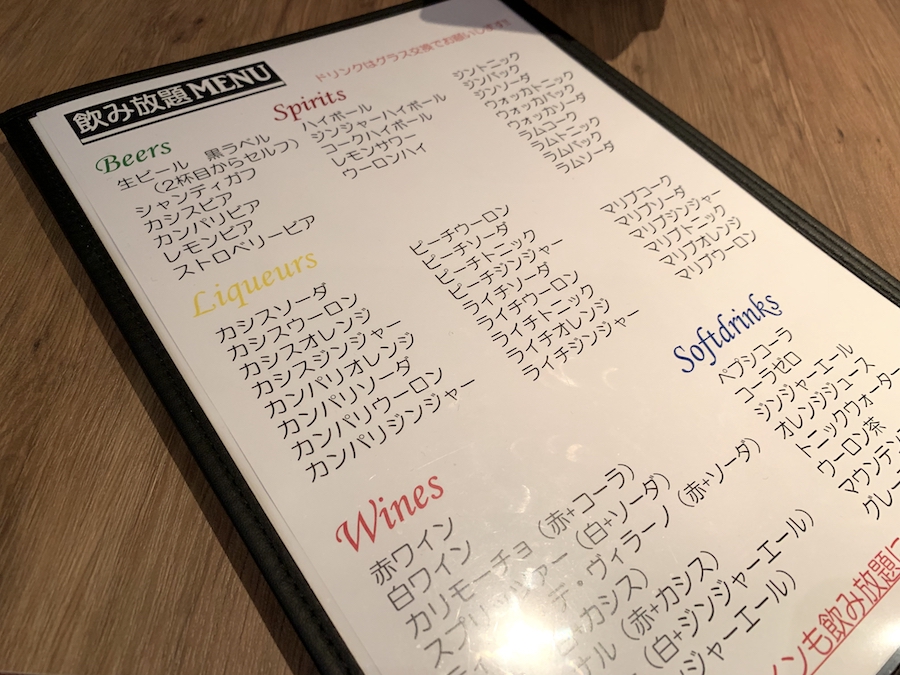 飲み放題MENU
ドリンクはグラス交換でお願いします!!
Beers
生ビール 黒ラベル
(2杯目からセルフ)
シャンディガフ
カシスビア
カンパリビア
レモンビア
ストロベリービア
Spirits
ハイボール
ジンジャーハイボール
コークハイボール
レモンサワー
ウーロンハイ
ジントニック
ジンバック
ジンソーダ
ウォッカトニック
ウォッカバック
ウォッカソーダ
ラムコーク
ラムトニック
ラムバック
ラムソーダ
Liqueurs
カシスソーダ
カシスウーロン
カシスオレンジ
カシスジンジャー
カンパリオレンジ
カンパリソーダ
カンパリウーロン
カンパリジンジャー
ピーチウーロン
ピーチソーダ
ピーチトニック
ピーチジンジャー
ライチソーダ
ライチウーロン
ライチトニック
ライチオレンジ
ライチジンジャー
マリブコーク
マリブソーダ
マリブジンジャー
マリブトニック
マリブオレンジ
マリブウーロン
Softdrinks
ペプシコーラ
コーラゼロ
ジンジャーエール
オレンジジュース
トニックウォーター
ウーロン茶
マウンテン
グレー
Wines
赤ワイン
白ワイン
カリモーチョ(赤+コーラ)
スプリッツァー(白+ソーダ)
デ・ヴィラーノ(赤+ソーダ)
+カシス)
ナル(赤+カシス)
(白+ジンジャーエール)
ンジャーエール)
ンも飲み放題に